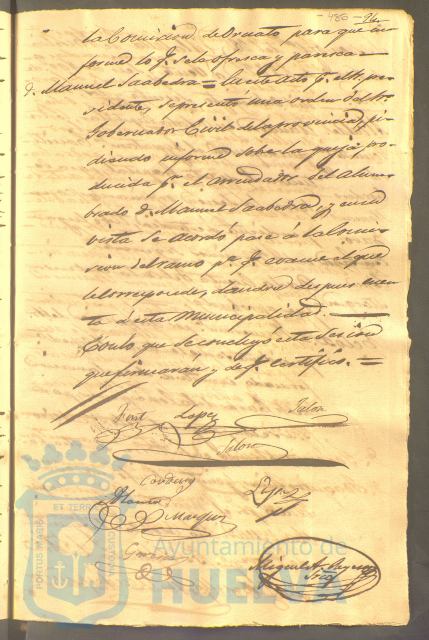 - 486 -
la Comision de Ornato para que in
forme lo q.e se la ofresca y paresca =
D. Manuel Saabedra = Excitado p.r el Sr. pre
sidente, se presentó una orden del Sr.
Gobernador Civil de la provincia, pi
diendo informe sobre la queja pro
ducida p.r el arrendador del alum
brado D. Manuel Saabedra, y en su
vista se acordó pase á la Comi
sion del ramo p.a q.e evacue el que
le corresponde, dandose despues cuen
ta á esta Municipalidad.
Con lo que se concluyó esta Sesion
que firmarán y de q.e certifico. =
Lopez
Jalon
Lopez
Marquez
Miguel
Srio
ET TERRÆ
PORTUS MARIS
CUSTODIA
Ayuntamiento de
HUELVA